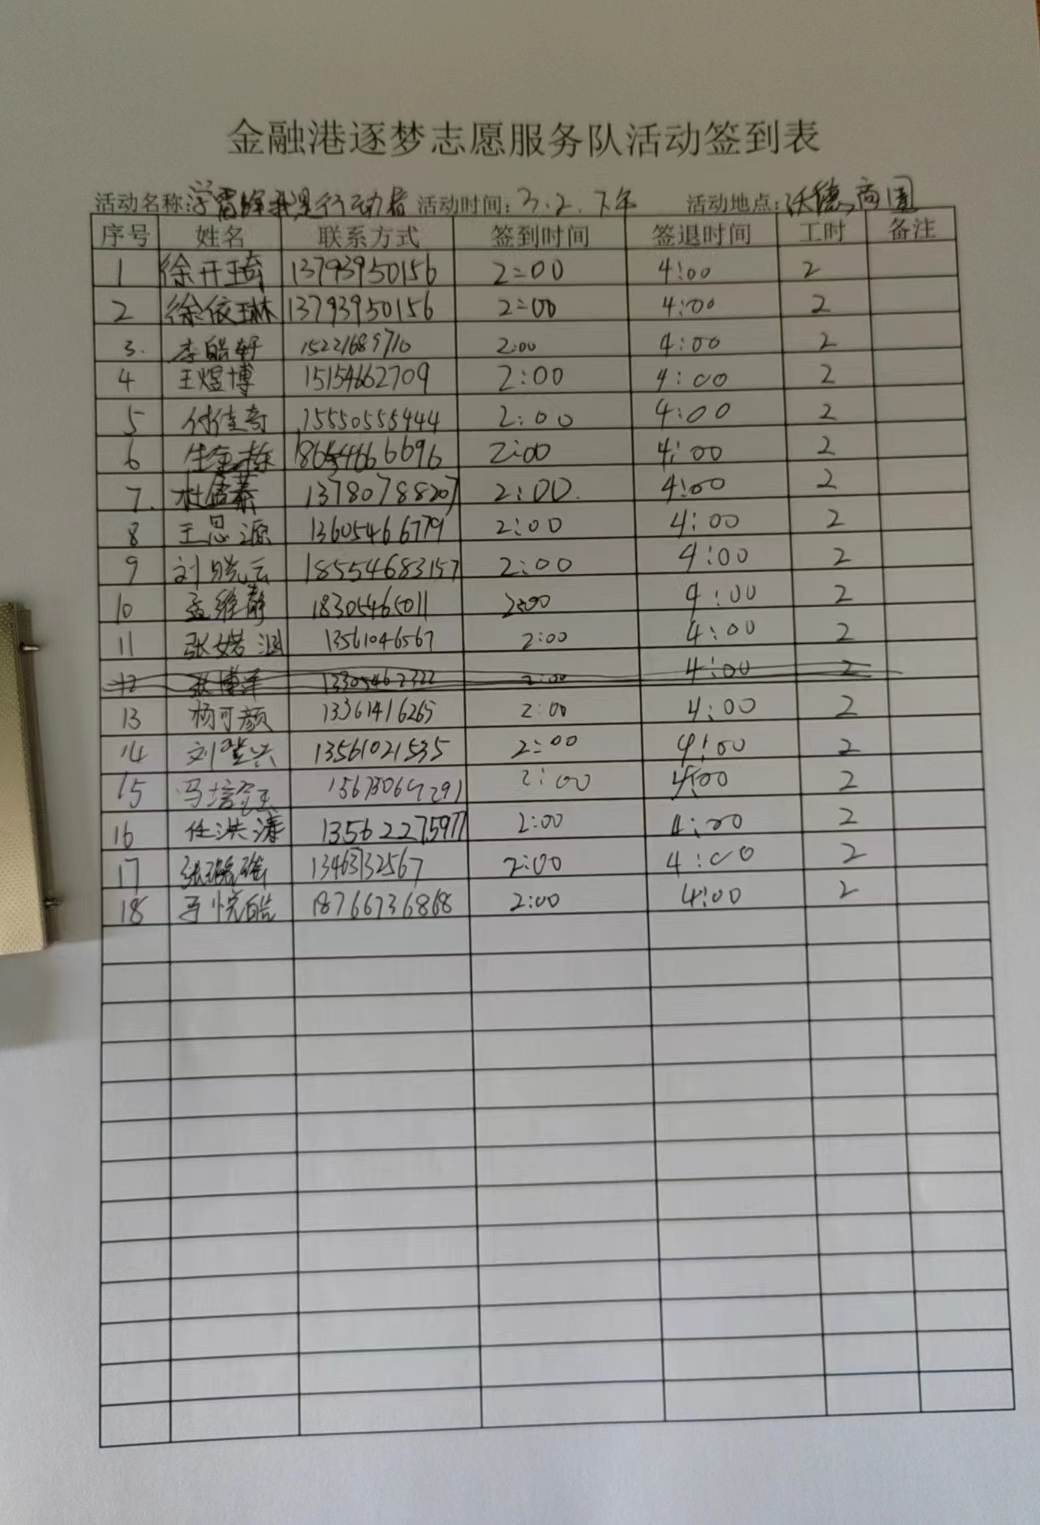 金融港逐梦志愿服务队活动签到表
活动名称:学雷锋我是行动者 活动时间:3.2.下午 活动地点:沃德商圈
序号 姓名 联系方式 签到时间 签退时间 工时 备注
1 徐开琦 13793950156 2:00 4:00 2
2 徐依琳 13793950156 2:00 4:00 2
3. 李皓轩 15221689710 2:00 4:00 2
4 王煜博 15154662709 2:00 4:00 2
5 付佳奇 15550555444 2:00 4:00 2
6 18654666696 2:00 4:00 2
7. 13780788207 2:00. 4:00 2
8 王思源 13605466779 2:00 4:00 2
9 刘晓云 18554683157 2:00 4:00 2
10 孟维静 18305465011 2:00 4:00 2
11 张婼涵 13561046567 2:00 4:00 2
12 张博洋 13305462322 2:00 4:00 2
13 杨可颜 13361416265 2:00 4:00 2
14 刘 兴 13561021535 2:00 4:00 2
15 冯培 2:00 4:00 2
16 任洪涛 13562275977 2:00 4:00 2
17 张 13463132567 2:00 4:00 2
18 悦皓 18766736868 2:00 4:00 2